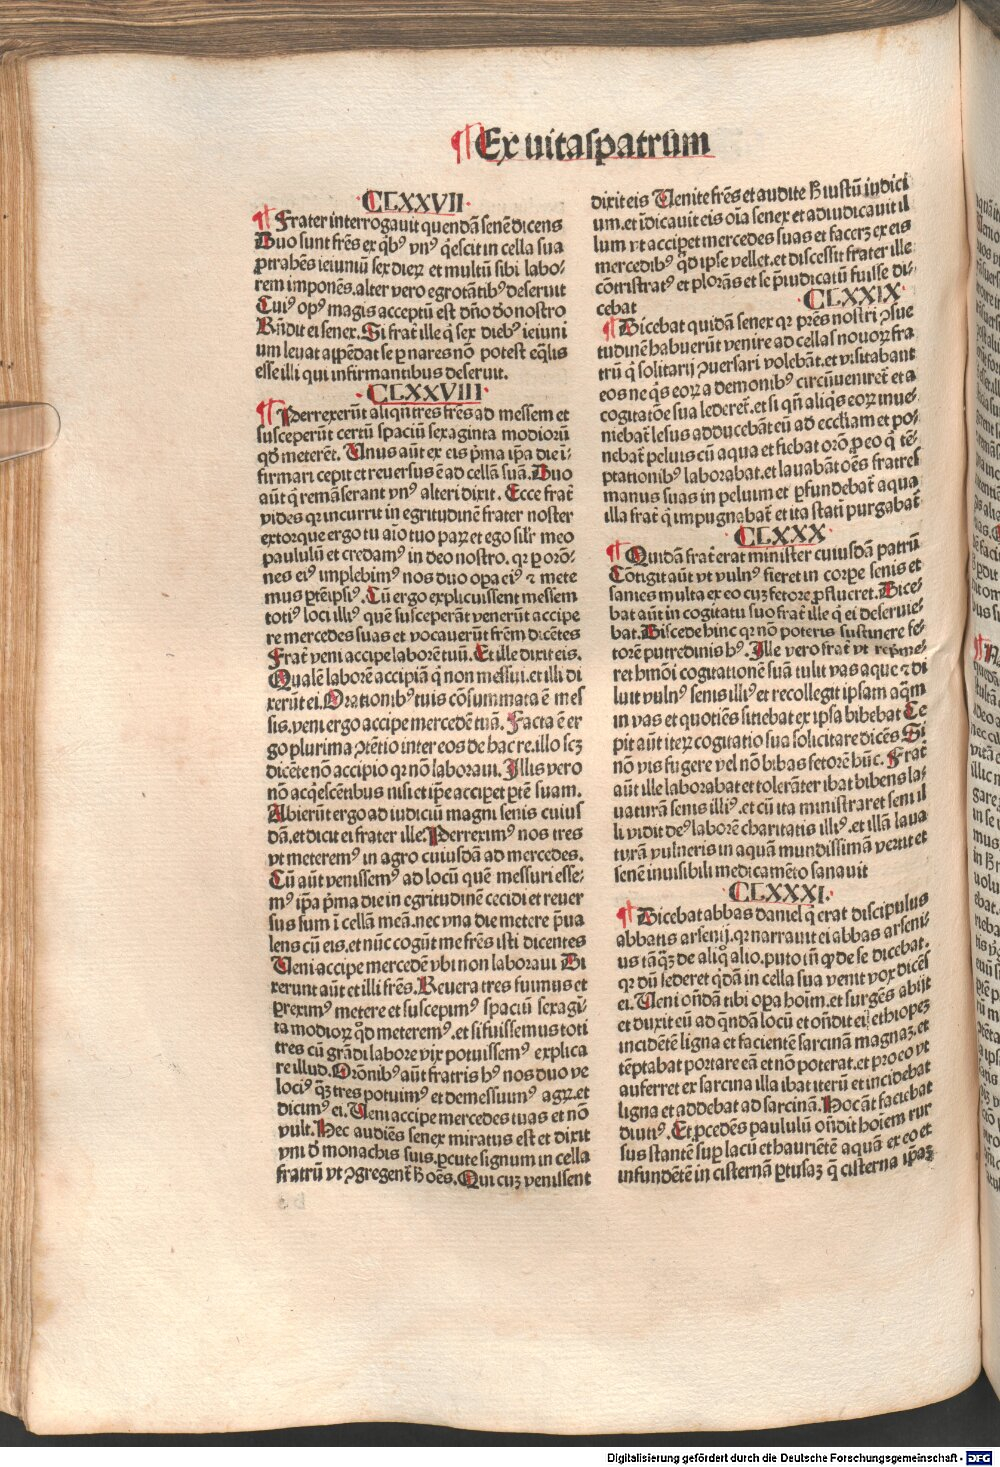 ¶Ex vitaspatrum
CLXXVII·
¶ Frater interrogauit quendā senē dicens
Duo sunt frēs ex qͥbꝰ vnꝰ q̄escit in cella sua
ꝓtrahēs ieiuniū sex dieꝝ et multū sibi labo⸗
rem imponēs.alter vero egrotātibꝰ deseruit
Cuiꝰ opꝰ magis acceptū est dn̄o deo nostro
Rn̄dit ei senex. Si frat̄ ille q̄ sex diebꝰ ieiuni
um leuat
esse illi qui infirmantibus deseruit.
·CLXXVIII·
¶ Perrexerūt aliqn̄ tres frēs ad messem et
susceperūt certū spaciū sexaginta modiorū
qd̄ meterēt. Unus aūt ex eis pͥma ip̄a die i⸗
firmari cepit et reuersus ē ad cellā suā. Duo
aūt q̄ remāserant vnꝰ alteri dixit. Ecce frat̄
vides qꝛ incurrit in egritudinē frater noster
extorque ergo tu aīo tuo paꝝ et ego sil'r meo
paululū et credamꝰ in deo nostro. qꝛ ꝑ orō⸗
nes eiꝰ implebimꝰ nos duo oꝑa eiꝰ ⁊ mete
mus ꝑtē ipsiꝰ. Cū ergo explicuissent messem
totiꝰ loci illiꝰ quē susceperāt venerūt accipe
re mercedes suas et vocauerūt frēm dicētes
Frat̄ veni accipe laborē tuū. Et ille dixit eis.
Qualē laborē accipiā q̄ non messui.et illi di
xerūt ei. Orationibꝰ tuis cōsummata ē mes
sis.veni ergo accipe mercedē tuā. Facta ē er
go plurima ꝯtētio inter eos de hac re.illo scꝫ
dicēte nō accipio qꝛ nō laboraui. Illis vero
nō acq̄escentibus nisi et ip̄e acciꝑet ꝑtē suam.
Abierūt ergo ad iudiciū magni senis cuius
dā.et dicit ei frater ille. Perreximꝰ nos tres
vt meteremꝰ in agro cuiusdā ad mercedes.
Cū aūt venissemꝰ ad locū quē messuri esse⸗
mꝰ ip̄a pͥma die in egritudinē cecidi et reuer
sus sum ī cellā meā.nec vna die metere p̄ua
lens cū eis.et nūc cogūt me frēs isti dicentes
Ueni accipe mercedē vbi non laboraui Di
xerunt aūt et illi frēs. Reuera tres fuimus et
ꝑreximꝰ metere et suscepimꝰ spaciū sexagi⸗
ta modioꝝ qd̄ meteremꝰ.et si fuissemus toti
tres cū grādi labore vix potuissemꝰ explica
re illud. Orōnibꝰ aūt fratris hꝰ nos duo ve
lociꝰ qͣꝫ tres potuimꝰ et demessuimꝰ agꝝ.et
dicimꝰ ei. Ueni accipe mercedes tuas et nō
vult. Hec audiēs senex miratus est et dixit
vni de monachis suis.ꝑcute signum in cella
fratrū vt ꝯgregent̄ h̄ oēs. Qui cuꝫ venissent
dixit eis Uenite frēs et audite h̄ iustū iudici
um.et īdicauit eis oīa senex et adiudicauit il
lum vt acciꝑet mercedes suas et faceꝫ ex eis
mercedibꝰ qd̄ ipse vellet.et discessit frater ille
cōtristratꝰ et plorās et se p̄iudicatū fuisse di⸗
cebat
·CLXXIX·
¶ Dicebat quidā senex qꝛ pr̄es nostri ꝯsue
tudinē habuerūt venire ad cellas nouoꝝ fra
trū q̄ solitarij ꝯuersari volebāt.et visitabant
eos ne qͥs eoꝝ a demonibꝰ circūueniret̄ et a
cogitatōe sua lederet̄.et si qn̄ aliqͥs eoꝝ inue⸗
niebat̄ lesus adducebāt eū ad eccl'iam et po⸗
nebat̄ peluis cū aqua et fiebat orō ꝓ eo q̄ tē⸗
ptationibꝰ laborabat.et lauabāt oēs fratres
manus suas in peluim et ꝑfundebat̄ aqua
illa frat̄ q̄ impugnabat̄ et ita stati purgabat̄
·CLXXX·
¶ Quidā frat̄ erat minister cuiusdā patrū
Cōtigit aūt vt vulnꝰ fieret in corꝑe senis et
sanies multa ex eo cuꝫ fetore ꝓflueret. Dice⸗
bat aūt in cogitatu suo frat̄ ille q̄ ei deseruie⸗
bat. Discede hinc qꝛ nō poteris sustinere fe⸗
torē putredinis hꝰ. Ille vero frat̄ vt repͥme⸗
ret hmōi cogitationē suā tulit vas aque ⁊ di
luit vulnꝰ senis illiꝰ et recollegit ipsam aq̄m
in vas et quotiēs sitiebat ex ipsa bibebat Ce
pit aūt iteꝝ cogitatio sua solicitare dicēs Si
nō vis fugere vel nō bibas fetorē hūc. Frat̄
aūt ille laborabat et tolerāter ibat bibens la⸗
uaturā senis illiꝰ.et cū ita ministraret seni il
li vidit deꝰ laborē charitatis illiꝰ.et illā laua
turā vulneris in aquā mundissimā vertit et
senē inuisibili medicamēto sanauit
·CLXXXI·
¶ Dicebat abbas daniel q̄ erat discipulus
abbatis arsenij.qꝛ narrauit ei abbas arseni⸗
us tāqͣꝫ de aliqͦ alio.puto tn̄ qd̄ de se dicebat.
qꝛ dū sederet qͥdā in cella sua venit vox dicēs
ei. Ueni ōndā tibi oꝑa hoīm.et surgēs abijt
et duxit eū ad q̄ndā locū et ōndit ei ethiopeꝫ
incidētē ligna et facientē sarcinā magnaꝫ.et
tēptabat portare eā et nō poterat.et pro eo vt
auferret ex sarcina illa ibat iterū et incidebat
ligna et addebat ad sarcinā. Hoc aūt faciebat
diutiꝰ. Et ꝓcedēs paululū ōndit hoīem rur
sus stantē suꝑ lacū et haurientē aquā ex eo et
infundētē in cisternā ꝑtusaꝫ q̄ cisterna ip̄aꝫ
Digitalisierung gefördert durch die Deutsche Forschungsgemeinschaft - DFG